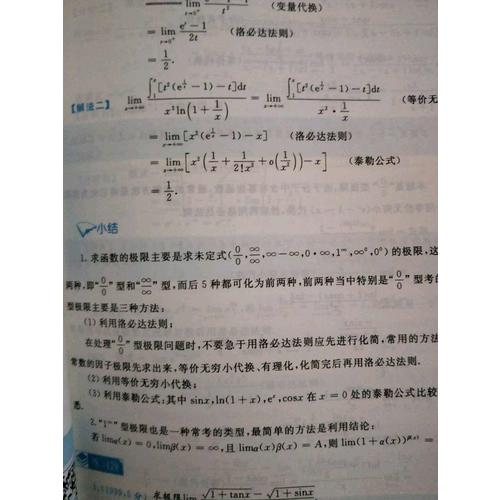 lim ——— (变量代换)
t→0⁺ t²
= lim_{t→0⁺} (eᵗ−1)/(2t) (洛必达法则)
= 1/2.
【解法二】 lim_{x→+∞} ∫₁ˣ[t²(e^{1/t}−1)−t]dt / (x²ln(1+1/x)) = lim_{x→+∞} ∫₁ˣ[t²(e^{1/t}−1)−t]dt / (x²·1/x) (等价无
= lim_{x→+∞}[x²(e^{1/x}−1)−x] (洛必达法则)
= lim_{x→+∞}[x²(1/x+1/(2!x²)+o(1/x²))−x] (泰勒公式)
= 1/2.
小结
1. 求函数的极限主要是求未定式(0/0,∞/∞,∞−∞,0·∞,1^∞,∞⁰,0⁰)的极限,这
两种,即“0/0”型和“∞/∞”型,而后5种都可化为前两种,前两种当中特别是“0/0”型考的
型极限主要是三种方法:
(1) 利用洛必达法则;
在处理“0/0”型极限问题时,不要急于用洛必达法则应先进行化简,常用的方法
常数的因子极限先求出来,等价无穷小代换、有理化,化简完后再用洛必达法则.
(2) 利用等价无穷小代换;
(3) 利用泰勒公式;其中 sinx,ln(1+x),eˣ,cosx 在 x=0 处的泰勒公式比较
悉.
2.“1^∞”型极限也是一种常考的类型,最简单的方法是利用结论:
若 limα(x)=0,limβ(x)=∞,且 limα(x)β(x)=A,则 lim(1+α(x))^{β(x)}=
(1999,5分) 求极限lim √(1+tanx)−√(1+sinx)